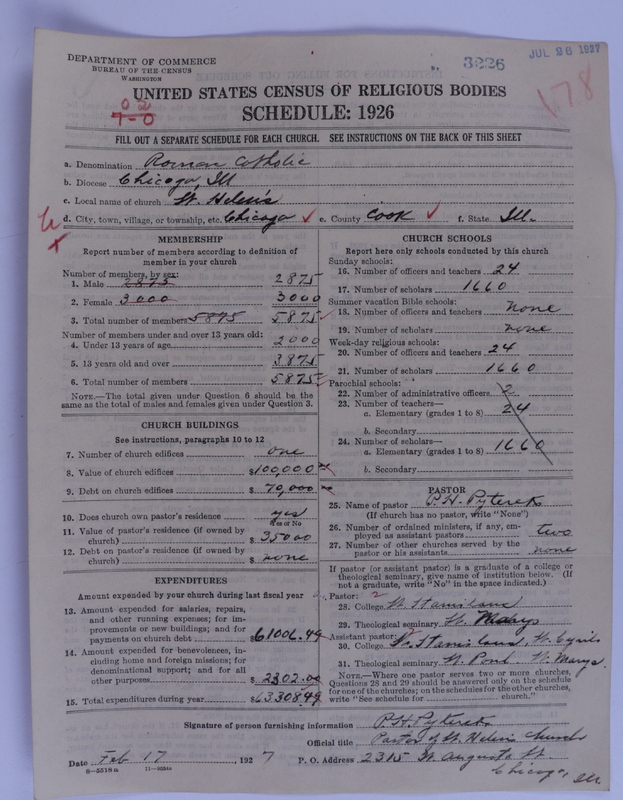 DEPARTMENT OF COMMERCE
BUREAU OF THE CENSUS
WASHINGTON
3226
JUL 26 1927
178
0 2
7-0
UNITED STATES CENSUS OF RELIGIOUS BODIES
SCHEDULE: 1926
FILL OUT A SEPARATE SCHEDULE FOR EACH CHURCH. SEE INSTRUCTIONS ON THE BACK OF THIS SHEET
a. Denomination Roman Catholic
b. Diocese Chicago, Ill
c. Local name of church St. Helen's
d. City, town, village, or township, etc. Chicago ✓ e. County Cook ✓ f. State Ill.
MEMBERSHIP
Report number of members according to definition of
member in your church
Number of members, by sex:
1. Male 2875 2875
2. Female 3000 3000
3. Total number of members 5875 5875
Number of members under and over 13 years old:
4. Under 13 years of age 2000
5. 13 years old and over 3875
6. Total number of members 5875
NOTE.—The total given under Question 6 should be the
same as the total of males and females given under Question 3.
CHURCH BUILDINGS
See instructions, paragraphs 10 to 12
7. Number of church edifices one
8. Value of church edifices $100,000
9. Debt on church edifices $70,000
10. Does church own pastor's residence? yes
Yes or No
11. Value of pastor's residence (if owned by
church) $35000
12. Debt on pastor's residence (if owned by
church) $none
EXPENDITURES
Amount expended by your church during last fiscal year
13. Amount expended for salaries, repairs,
and other running expenses; for im-
provements or new buildings; and for
payments on church debt 61006.49
14. Amount expended for benevolences, in-
cluding home and foreign missions; for
denominational support; and for all
other purposes $2302.00
15. Total expenditures during year $63308.49
CHURCH SCHOOLS
Report here only schools conducted by this church
Sunday schools:
16. Number of officers and teachers 24
17. Number of scholars 1660
Summer vacation Bible schools:
18. Number of officers and teachers none
19. Number of scholars none
Week-day religious schools:
20. Number of officers and teachers 24
21. Number of scholars 1660
Parochial schools:
22. Number of administrative officers 2
23. Number of teachers—
a. Elementary (grades 1 to 8) 24
b. Secondary
24. Number of scholars—
a. Elementary (grades 1 to 8) 1660
b. Secondary
PASTOR
25. Name of pastor P.H. Pyterek
(If church has no pastor, write "None")
26. Number of ordained ministers, if any, em-
ployed as assistant pastors two
27. Number of other churches served by the
pastor or his assistants none
If pastor (or assistant pastor) is a graduate of a college or
theological seminary, give name of institution below. (If
not a graduate, write "No" in the space indicated.)
Pastor: 2
28. College St. Stanislaus
29. Theological seminary St. Marys
Assistant pastor:
30. College St. Stanislaus, St. Cyrils
31. Theological seminary St. Marys.
NOTE.—Where one pastor serves two or more churches,
Questions 28 and 29 should be answered only on the schedule
for one of the churches; on the schedules for the other churches,
write "See schedule for church."
Signature of person furnishing information P.H. Pyterek
Official title Pastor of St. Helen's Church
Date Feb 17, 1927 P. O. Address 2315 W. Augusta St.
Chicago, Ill.
8—5518a